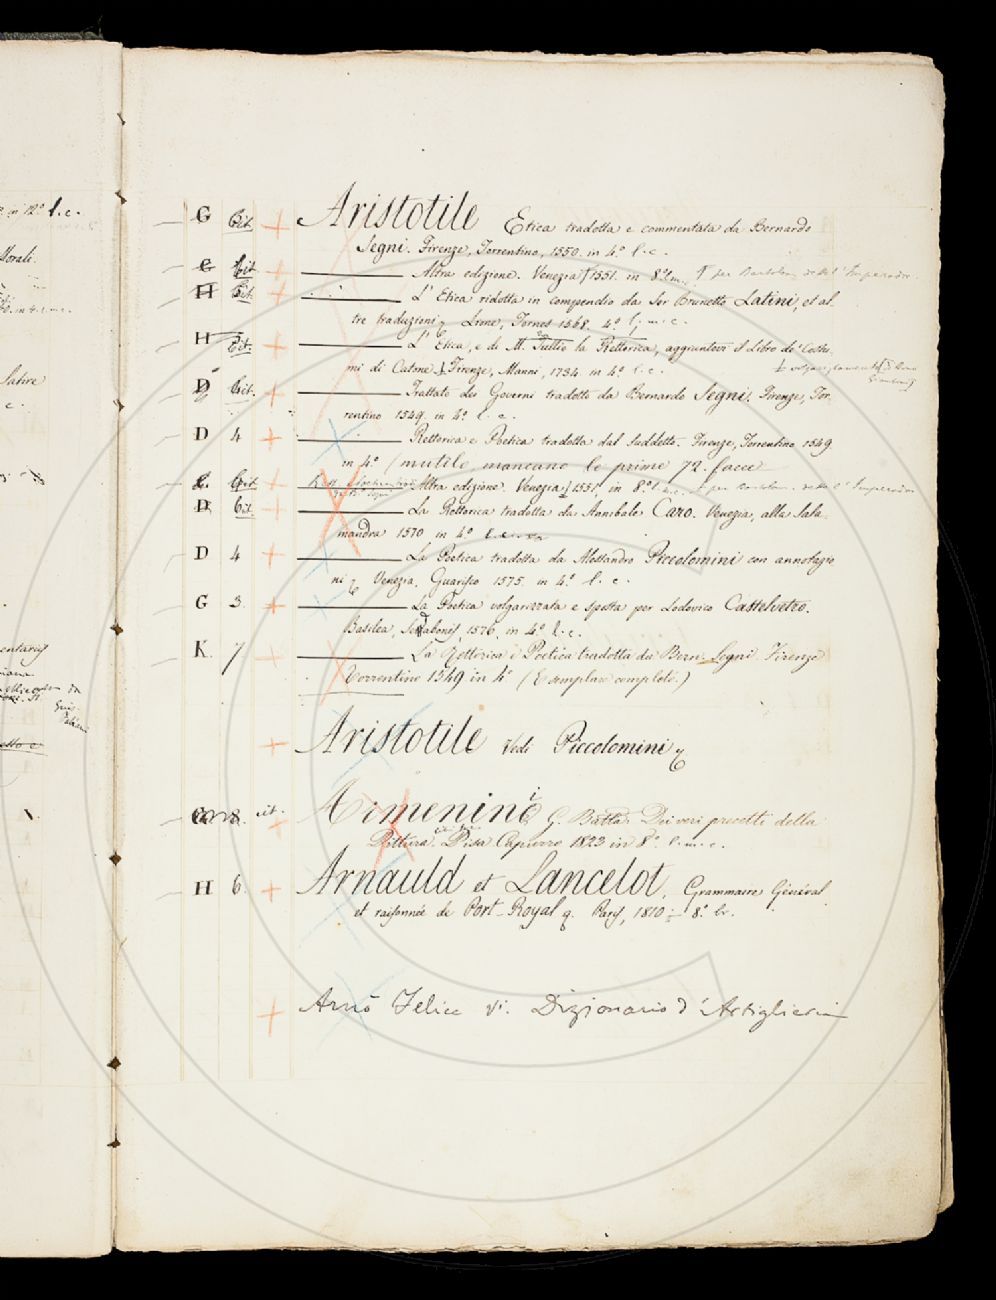 in 12º l.c.
Morali.
Satire
c.
G Cit. Aristotile Etica tradotta e commentata da Bernardo
Segni. Firenze, Torrentino, 1550. in 4º l.c.
G Cit. Altra edizione. Venezia 1551. in 8º l.m.c. per Bartolom. detto l'Imperador
H Cit. L'Etica ridotta in compendio da Ser Brunetto Latini, et al
tre traduzioni, Lione, Tornes 1568. 4º l.m.c.
H Cit. L'Etica, e di M. Tullio la Rettorica, aggiuntovi il Libro de' Costu
mi di Catone. Firenze, Manni, 1734. in 4º l.c.
D Cit. Trattato dei Governi tradotto da Bernardo Segni. Firenze, Tor
rentino 1549. in 4º l.c.
D 4 Rettorica e Poetica tradotta dal Suddetto. Firenze, Torrentino 1549
in 4º (mutilo mancano le prime 72. facce
Cit. Altra edizione. Venezia 1551. in 8º l.m.c. per Bartolom. detto l'Imperador
D Cit. La Rettorica tradotta da Annibale Caro. Venezia, alla Sala
mandra 1570 in 4º
D 4 La Poetica tradotta da Alessandro Piccolomini con annotazio
ni, Venezia, Guarisco 1575. in 4º l.c.
G 3. La Poetica volgarizzata e sposta per Lodovico Castelvetro.
Basilea, 1576. in 4º l.c.
K. 7 La Rettorica e Poetica tradotta da Bern. Segni. Firenze
Torrentino 1549 in 4º (Esemplare completo.)
Aristotile Vedi Piccolomini
cit. Armenini G. Batta. Dei veri precetti della
Pittura. Pisa Capurro 1823 in 8º l.m.c.
H 6. Arnauld et Lancelot, Grammaire Général
et raisonnée de Port-Royal Paris, 1810 8º br.
Arnò Felice Vi. Dizionario d'Artiglieria